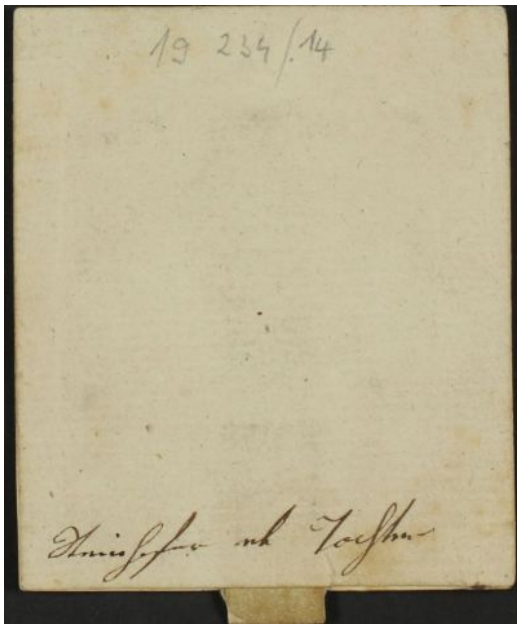 19 234/14
Steinhofer u Tochter